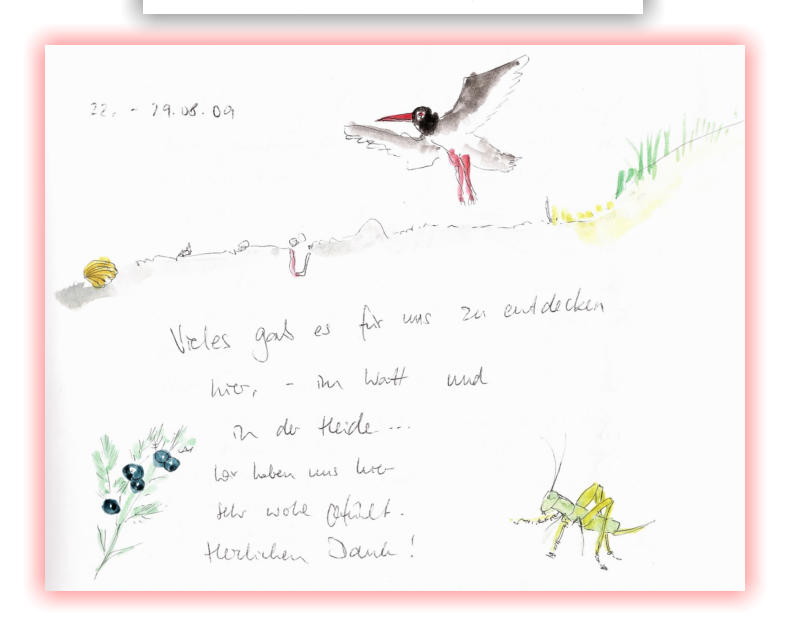 22. - 29.08.09
Vieles gab es für uns zu entdecken
hier, - im Watt und
in der Heide...
wir haben uns hier
sehr wohl gefühlt.
Herzlichen Dank!